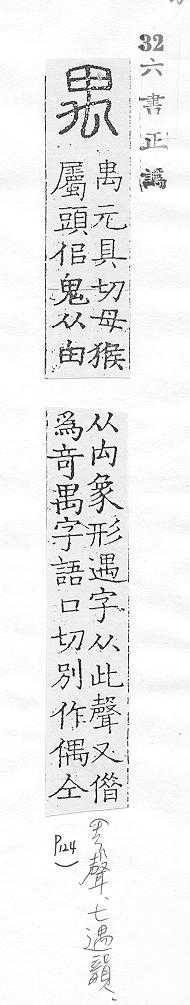 32 六書正譌
禺
禺元具切母猴
屬頭佀鬼从甶
从禸象形遇字从此聲又借
爲奇禺字語口切別作偶仝
(去聲、七遇韻、
P124)